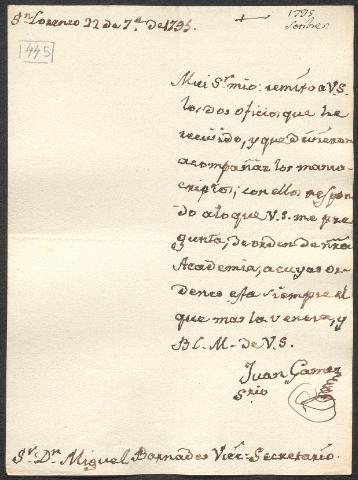 Sn. Lorenzo 22 de 7e. de 1795.
1795
Setiber
445
Mui Sr. mio: remito a V.S.
los dos oficios que he
recivido, y que devieron
acompañar los manus-
criptos; con ellos respon-
do a lo que V.S. me pre
gunta, de orden de nra.
Academia, a cuyas or-
denes esta siempre el
que mas la venera, y
B.L.M. de V.S.
Juan Gamez
Srio
Sr. Dn. Miguel Barnades Vice-Secretario.